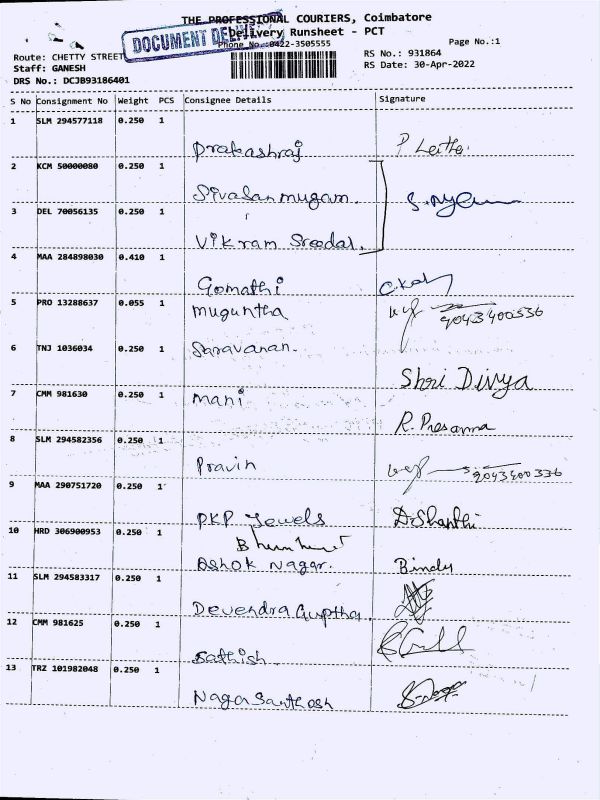 THE PROFESSIONAL COURIERS, Coimbatore
DOCUMENT
Delivery Runsheet - PCT
Phone No.:0422-3505555
Page No.:1
Route: CHETTY STREET
RS No.: 931864
Staff: GANESH
RS Date: 30-Apr-2022
DRS No.: DCJB93186401
S No Consignment No Weight PCS Consignee Details Signature
1 SLM 294577118 0.250 1
Prakashraj P Leitha.
2 KCM 50000080 0.250 1
Sivasanmugam.
3 DEL 70056135 0.250 1
Vikram Sreedal.
4 MAA 284898030 0.410 1
Gomathi
5 PRO 13288637 0.055 1
muguntha 9043400336
6 TNJ 1036034 0.250 1
Saravanan.
Shri Divya
7 CMM 981630 0.250 1
mani
R. Prasanna
8 SLM 294582356 0.250 1
Pravin 9043400336
9 MAA 290751720 0.250 1
PKP Jewels D.Shanthi
10 HRD 306900953 0.250 1
Ashok Nagar. Bindu
11 SLM 294583317 0.250 1
Devendra Guptha
12 CMM 981625 0.250 1
Sathish
13 TRZ 101982048 0.250 1
Naga Santhosh